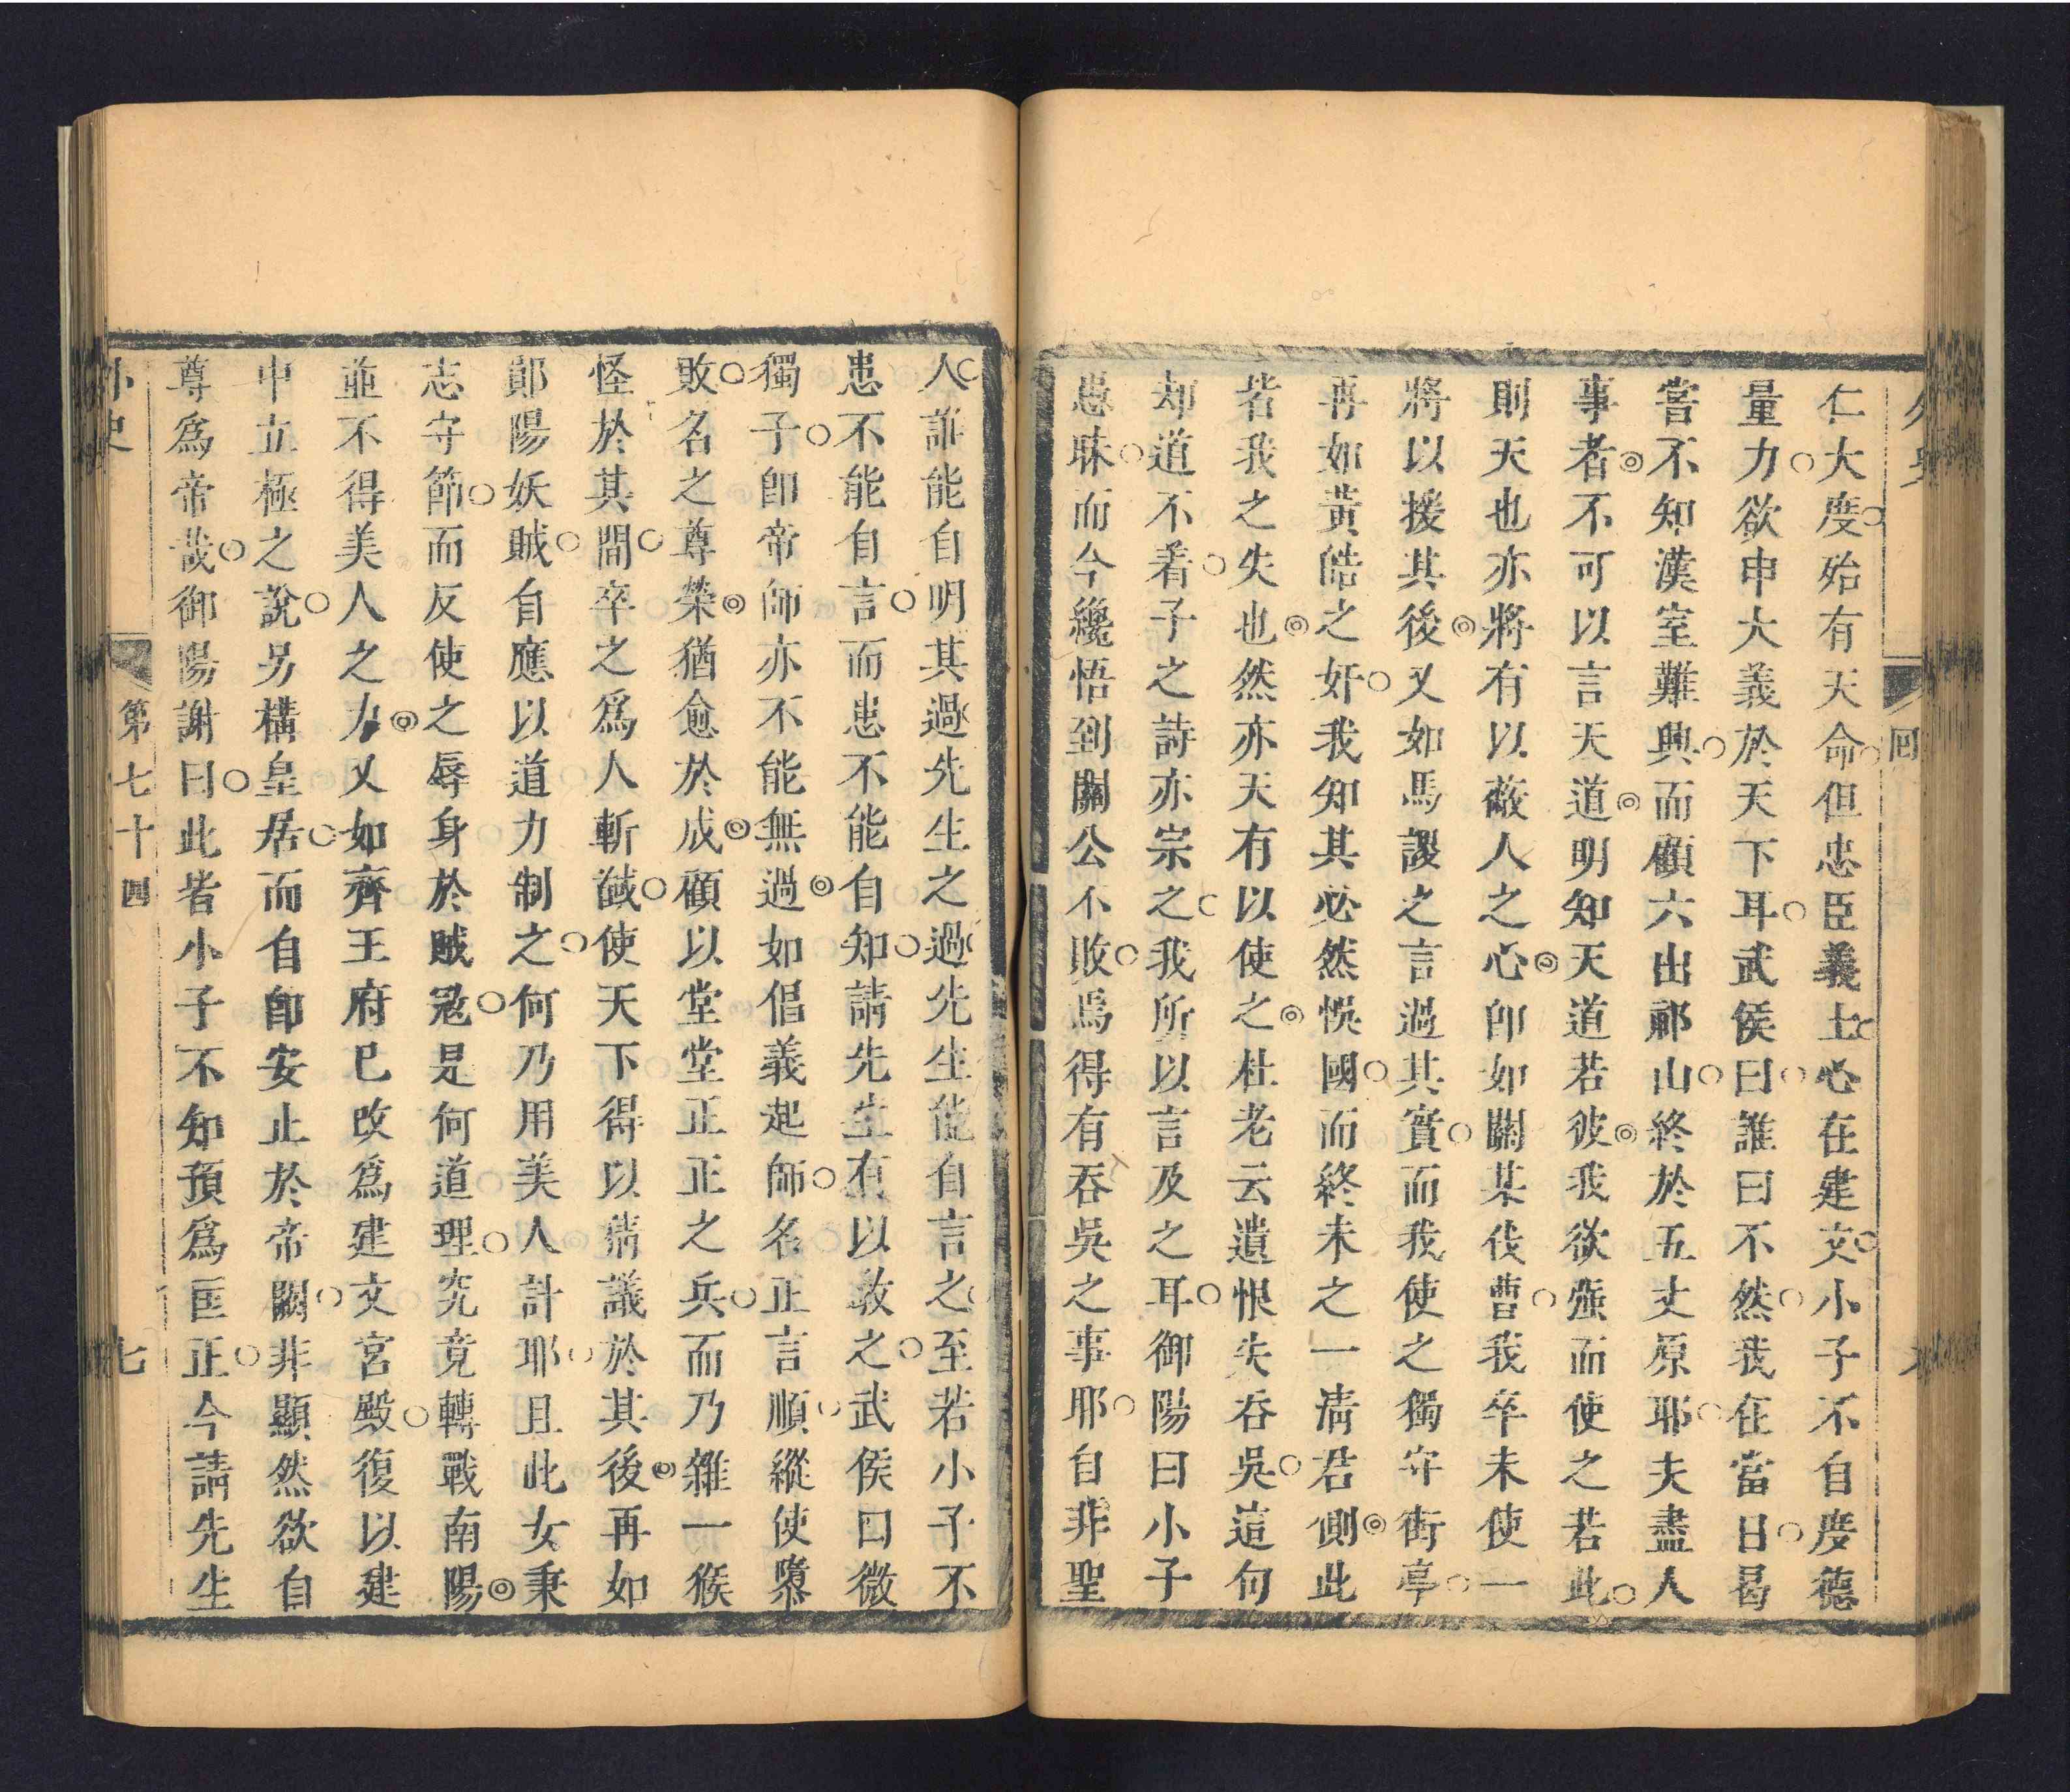 仁大度殆有天命但忠臣義士心在建文小子不自度德
量力欲申大義於天下耳武侯曰誰曰不然我在當日曷
嘗不知漢室難興而顧六出祁山終於五丈原耶夫盡人
事者不可以言天道明知天道若彼我欲强而使之若此
則天也亦將有以蔽人之心卽如關某伐曹我卒未使一
將以援其後又如馬謖之言過其實而我使之獨守街亭
再如黃皓之奸我知其必然悞國而終未之一清君側此
若我之失也然亦天有以使之杜老云遺恨失吞吳這句
却道不着子之詩亦宗之我所以言及之耳御陽曰小子
愚昧而今纔悟到關公不敗焉得有吞吳之事耶自非聖
人誰能自明其過先生之過先生能自言之至若小子不
患不能自言而患不能自知請先生有以敎之武侯曰微
獨子卽帝師亦不能無過如倡義起師名正言順縱使隳
敗名之尊榮猶愈於成顧以堂堂正正之兵而乃雜一猴
怪於其間卒之爲人斬馘使天下得以猜議於其後再如
鄖陽妖賊自應以道力制之何乃用美人計耶且此女秉
志守節而反使之辱身於賊寇是何道理究竟轉戰南陽
並不得美人之力又如齊王府已改爲建文宮殿復以建
中立極之說另構皇居而自卽安止於帝闕非顯然欲自
尊爲帝哉御陽謝曰此皆小子不知預爲匡正今請先生
外史
第七十四
七
回